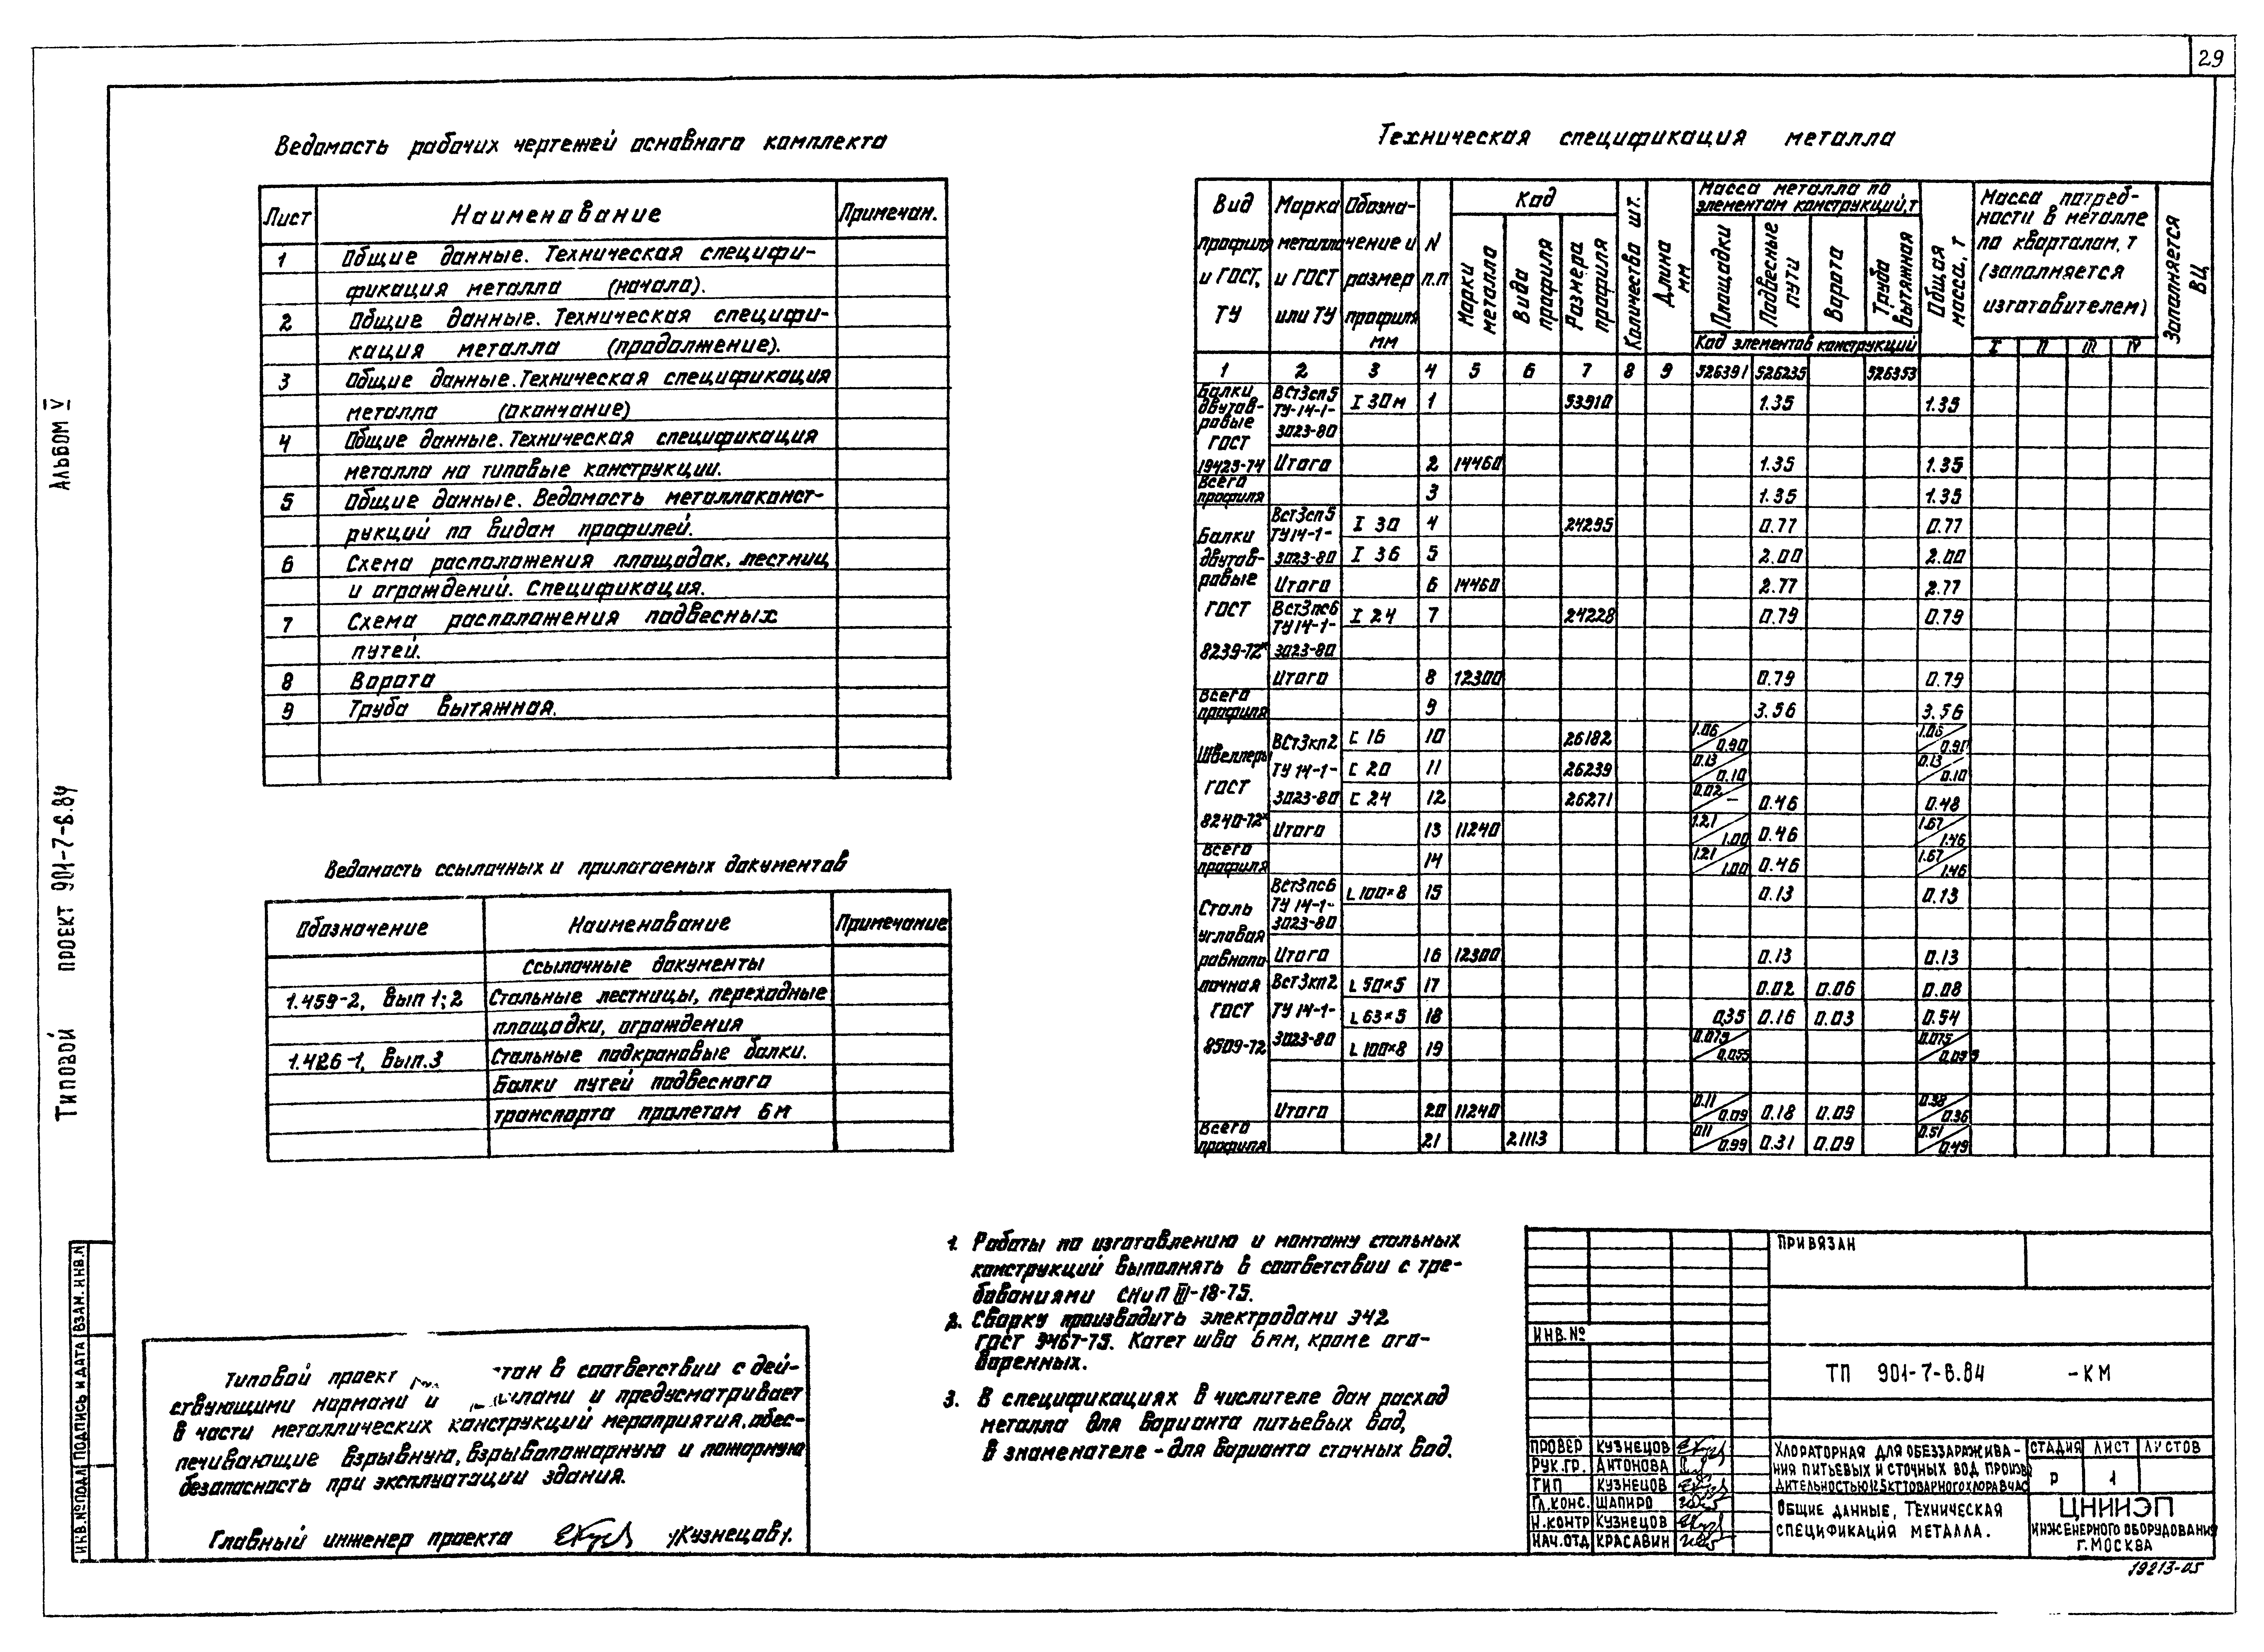 29
Альбом V
Типовой проект 901-7-8.84
Ведомость рабочих чертежей основного комплекта
Лист Наименование Примечан.
1 Общие данные. Техническая специфи-
фикация металла (начало).
2 Общие данные. Техническая специфи-
кация металла (продолжение).
3 Общие данные. Техническая спецификация
металла (окончание)
4 Общие данные. Техническая спецификация
металла на типовые конструкции.
5 Общие данные. Ведомость металлоконст-
рукций по видам профилей.
6 Схема расположения площадок, лестниц
и ограждений. Спецификация.
7 Схема расположения подвесных
путей.
8 Ворота
9 Труба вытяжная.
Ведомость ссылочных и прилагаемых документов
Обозначение Наименование Примечание
Ссылочные документы
1.459-2, Вып 1;2 Стальные лестницы, переходные
площадки, ограждения
1.426-1, Вып.3 Стальные подкрановые балки.
Балки путей подвесного
транспорта пролетом 6м
Техническая спецификация металла
Вид профиля и ГОСТ, ТУ
Марка металла и ГОСТ или ТУ
Обозначение и размер профиля мм
N п.п
Код
Марки металла
Вида профиля
Размера профиля
Количество шт.
Длина мм
Масса металла по элементам конструкций, т
Площадки
Подвесные пути
Ворота
Труба вытяжная
Код элементов конструкций
Общая масса, т
Масса потреб-
ности в металле
по кварталам, т
(заполняется
изготовителем)
I II III IV
Заполняется ВЦ
1 2 3 4 5 6 7 8 9 526391 526235 526353
Балки двутав-ровые ГОСТ 19425-74
ВСт3сп5 ТУ-14-1-3023-80 I 30м 1 53910 1.35 1.35
Итого 2 14460 1.35 1.35
Всего профиля 3 1.35 1.35
Балки двутав-ровые ГОСТ 8239-72*
Вст3сп5 ТУ14-1-3023-80 I 30 4 24295 0.77 0.77
I 36 5 2.00 2.00
Итого 6 14460 2.77 2.77
Вст3пс6 ТУ14-1-3023-80 I 24 7 24228 0.79 0.79
Итого 8 12300 0.79 0.79
Всего профиля 9 3.56 3.56
Швеллеры ГОСТ 8240-72*
ВСт3кп2 ТУ 14-1-3023-80 С 16 10 26182 1.06/0.90 1.06/0.90
С 20 11 26239 0.13/0.10 0.13/0.10
С 24 12 26271 0.02/— 0.46 0.48
Итого 13 11240 1.21/1.00 0.46 1.67/1.46
Всего профиля 14 1.21/1.00 0.46 1.67/1.46
Сталь угловая равнопо-лочная ГОСТ 8509-72
Вст3пс6 ТУ 14-1-3023-80 L 100×8 15 0.13 0.13
Итого 16 12300 0.13 0.13
Вст3кп2 ТУ 14-1-3023-80 L 50×5 17 0.02 0.06 0.08
L 63×5 18 0,35 0.16 0.03 0.54
L 100×8 19 0.075/0.055 0.075/
Итого 20 11240 0.11/0.09 0.18 0.09 0.38/0.36
Всего профиля 21 21113 0.11/0.99 0.31 0.09 0.51/0.49
1. Работы по изготовлению и монтажу стальных
конструкций выполнять в соответствии с тре-
бованиями СНиП III-18-75.
2. Сварку производить электродами Э42
ГОСТ 9467-75. Катет шва 6мм, кроме ого-
воренных.
3. В спецификациях в числителе дан расход
металла для варианта питьевых вод,
в знаменателе - для варианта сточных вод.
Типовой проект тан в соответствии с дей-
ствующими нормами и илами и предусматривает
в части металлических конструкций мероприятия, обес-
печивающие взрывную, взрывопожарную и пожарную
безопасность при эксплуатации здания.
Главный инженер проекта /Кузнецов/.
Инв.№ подл Подпись и дата Взам. инв.N
Привязан
Инв.№
ТП 901-7-8.84 -КМ
Провер Кузнецов
Рук.гр. Антонова
ГИП Кузнецов
Гл.конс. Шапиро
Н.контр Кузнецов
Нач.отд Красавин
Хлораторная для обеззаражива-
ния питьевых и сточных вод произво
дительностью 12.5кг товарного хлора в час
Стадия Лист Листов
Р 1
Общие данные, Техническая
спецификация металла.
ЦНИИЭП
инженерного оборудования
г. Москва
19213-05